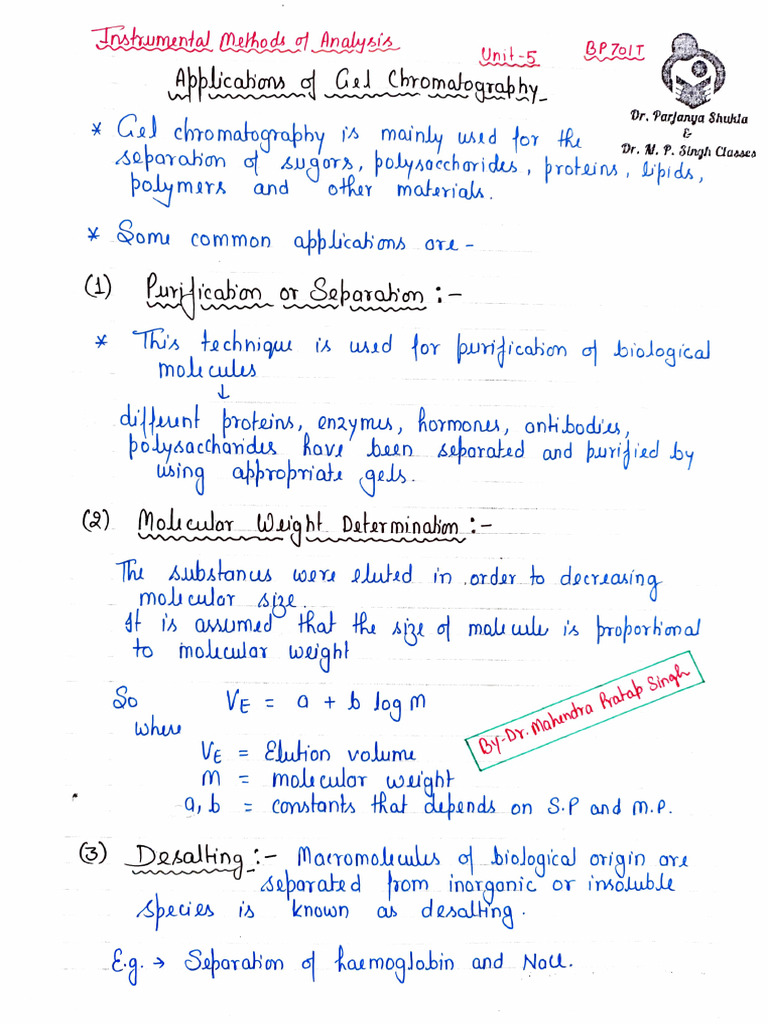 Instrumental Methods of Analysis
Unit-5
BP701T
Applications of Gel Chromatography
Dr. Parjanya Shukla
&
Dr. M. P. Singh Classes
* Gel chromatography is mainly used for the
separation of sugars, polysaccharides, proteins, lipids,
polymers and other materials.
* Some common applications are -
(1) Purification or Separation :-
* This technique is used for purification of biological
molecules
↓
different proteins, enzymes, hormones, antibodies,
polysaccharides have been separated and purified by
using appropriate gels.
(2) Molecular Weight Determination :-
The substances were eluted in order to decreasing
molecular size.
It is assumed that the size of molecule is proportional
to molecular weight
So VE = a + b log M
where
VE = Elution volume
M = molecular weight
a, b = constants that depends on S.P and M.P.
By-Dr. Mahendra Pratap Singh
(3) Desalting :- Macromolecules of biological origin are
separated from inorganic or insoluble
species is known as desalting.
E.g. → Separation of haemoglobin and NaCl.